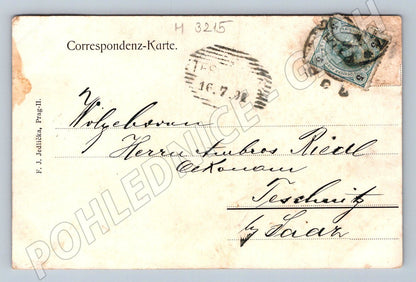 H 3215
Correspondenz-Karte.
16.7.
F. J. Jedlička, Prag-II.
Wolgeboren
Herrn Ambros Riedl
Oekonom
Teschnitz
by Saaz
POHLEDNICE